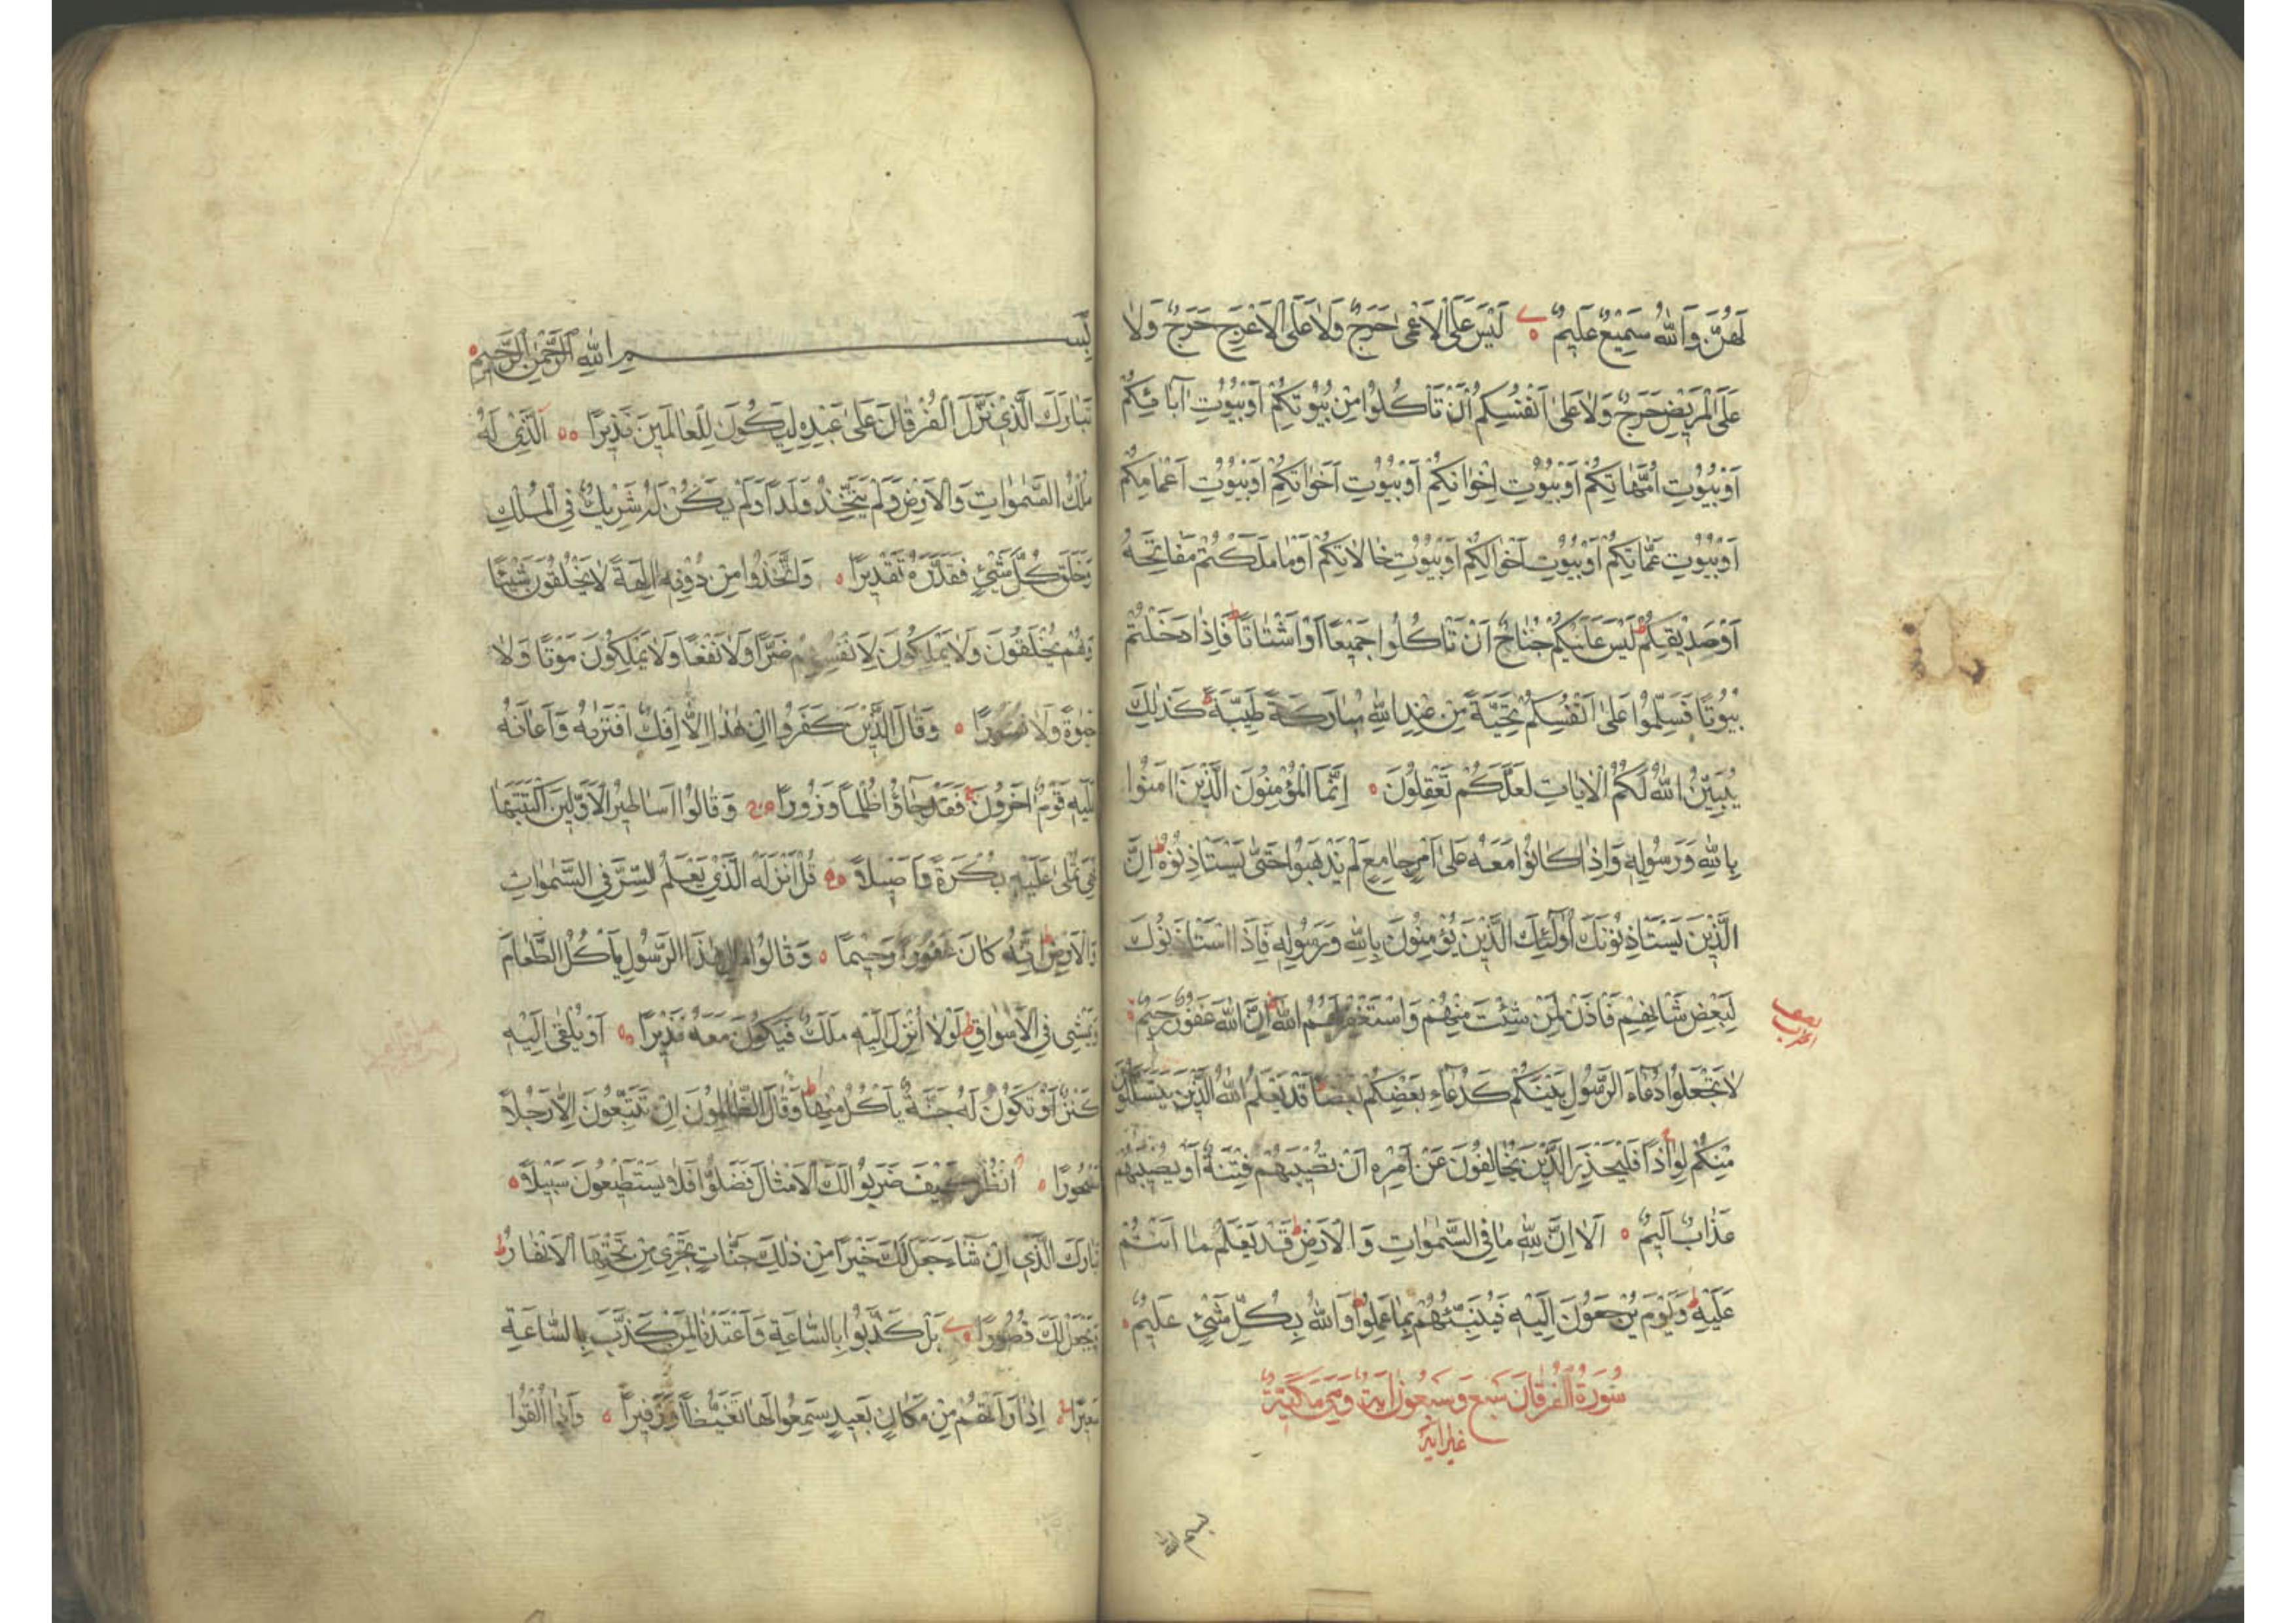 لَهُنَّ وَاللّٰهُ سَمِيْعٌ عَلِيْمٌ ۝ لَيْسَ عَلَى الْاَعْمٰى حَرَجٌ وَلَا عَلَى الْاَعْرَجِ حَرَجٌ وَلَا
عَلَى الْمَرِيْضِ حَرَجٌ وَلَا عَلٰى اَنْفُسِكُمْ اَنْ تَاْكُلُوْا مِنْ بُيُوْتِكُمْ اَوْ بُيُوْتِ اٰبَائِكُمْ
اَوْ بُيُوْتِ اُمَّهَاتِكُمْ اَوْ بُيُوْتِ اِخْوَانِكُمْ اَوْ بُيُوْتِ اَخَوَاتِكُمْ اَوْ بُيُوْتِ اَعْمَامِكُمْ
اَوْ بُيُوْتِ عَمَّاتِكُمْ اَوْ بُيُوْتِ اَخْوَالِكُمْ اَوْ بُيُوْتِ خَالَاتِكُمْ اَوْ مَا مَلَكْتُمْ مَفَاتِحَهُ
اَوْ صَدِيْقِكُمْ ط لَيْسَ عَلَيْكُمْ جُنَاحٌ اَنْ تَاْكُلُوْا جَمِيْعًا اَوْ اَشْتَاتًا ط فَاِذَا دَخَلْتُمْ
بُيُوْتًا فَسَلِّمُوْا عَلٰى اَنْفُسِكُمْ تَحِيَّةً مِنْ عِنْدِ اللّٰهِ مُبَارَكَةً طَيِّبَةً ط كَذٰلِكَ
يُبَيِّنُ اللّٰهُ لَكُمُ الْاٰيَاتِ لَعَلَّكُمْ تَعْقِلُوْنَ ۝ اِنَّمَا الْمُؤْمِنُوْنَ الَّذِيْنَ اٰمَنُوْا
بِاللّٰهِ وَرَسُوْلِهٖ وَاِذَا كَانُوْا مَعَهُ عَلٰى اَمْرٍ جَامِعٍ لَمْ يَذْهَبُوْا حَتّٰى يَسْتَاْذِنُوْهُ ط اِنَّ
الَّذِيْنَ يَسْتَاْذِنُوْنَكَ اُولٰئِكَ الَّذِيْنَ يُؤْمِنُوْنَ بِاللّٰهِ وَرَسُوْلِهٖ فَاِذَا اسْتَاْذَنُوْكَ
لِبَعْضِ شَاْنِهِمْ فَاْذَنْ لِمَنْ شِئْتَ مِنْهُمْ وَاسْتَغْفِرْ لَهُمُ اللّٰهَ ط اِنَّ اللّٰهَ غَفُوْرٌ رَحِيْمٌ ۝
نصف الحزب
لَا تَجْعَلُوْا دُعَاءَ الرَّسُوْلِ بَيْنَكُمْ كَدُعَاءِ بَعْضِكُمْ بَعْضًا ط قَدْ يَعْلَمُ اللّٰهُ الَّذِيْنَ يَتَسَلَّلُوْنَ
مِنْكُمْ لِوَاذًا فَلْيَحْذَرِ الَّذِيْنَ يُخَالِفُوْنَ عَنْ اَمْرِهٖ اَنْ تُصِيْبَهُمْ فِتْنَةٌ اَوْ يُصِيْبَهُمْ
عَذَابٌ اَلِيْمٌ ۝ اَلَا اِنَّ لِلّٰهِ مَا فِي السَّمٰوَاتِ وَالْاَرْضِ ط قَدْ يَعْلَمُ مَا اَنْتُمْ
عَلَيْهِ ط وَيَوْمَ يُرْجَعُوْنَ اِلَيْهِ فَيُنَبِّئُهُمْ بِمَا عَمِلُوْا ط وَاللّٰهُ بِكُلِّ شَيْءٍ عَلِيْمٌ ۝
سُوْرَةُ الْفُرْقَانِ سَبْعٌ وَسَبْعُوْنَ اٰيَةً وَهِيَ مَكِّيَّةٌ
بسم الله
بِسْمِ اللّٰهِ الرَّحْمٰنِ الرَّحِيْمِ ۝
تَبَارَكَ الَّذِيْ نَزَّلَ الْفُرْقَانَ عَلٰى عَبْدِهٖ لِيَكُوْنَ لِلْعَالَمِيْنَ نَذِيْرًا ۝ اَلَّذِيْ لَهُ
مُلْكُ السَّمٰوَاتِ وَالْاَرْضِ وَلَمْ يَتَّخِذْ وَلَدًا وَلَمْ يَكُنْ لَهُ شَرِيْكٌ فِي الْمُلْكِ
وَخَلَقَ كُلَّ شَيْءٍ فَقَدَّرَهُ تَقْدِيْرًا ۝ وَاتَّخَذُوْا مِنْ دُوْنِهٖ اٰلِهَةً لَا يَخْلُقُوْنَ شَيْئًا
وَهُمْ يُخْلَقُوْنَ وَلَا يَمْلِكُوْنَ لِاَنْفُسِهِمْ ضَرًّا وَلَا نَفْعًا وَلَا يَمْلِكُوْنَ مَوْتًا وَلَا
حَيٰوةً وَلَا نُشُوْرًا ۝ وَقَالَ الَّذِيْنَ كَفَرُوْا اِنْ هٰذَا اِلَّا اِفْكٌ افْتَرٰيهُ وَاَعَانَهُ
عَلَيْهِ قَوْمٌ اٰخَرُوْنَ فَقَدْ جَاؤُ ظُلْمًا وَزُوْرًا ۝ وَقَالُوْا اَسَاطِيْرُ الْاَوَّلِيْنَ اكْتَتَبَهَا
فَهِيَ تُمْلٰى عَلَيْهِ بُكْرَةً وَاَصِيْلًا ۝ قُلْ اَنْزَلَهُ الَّذِيْ يَعْلَمُ السِّرَّ فِي السَّمٰوَاتِ
وَالْاَرْضِ ط اِنَّهُ كَانَ غَفُوْرًا رَحِيْمًا ۝ وَقَالُوْا مَالِ هٰذَا الرَّسُوْلِ يَاْكُلُ الطَّعَامَ
وَيَمْشِيْ فِي الْاَسْوَاقِ ط لَوْلَا اُنْزِلَ اِلَيْهِ مَلَكٌ فَيَكُوْنَ مَعَهُ نَذِيْرًا ۝ اَوْ يُلْقٰى اِلَيْهِ
كَنْزٌ اَوْ تَكُوْنُ لَهُ جَنَّةٌ يَاْكُلُ مِنْهَا ط وَقَالَ الظَّالِمُوْنَ اِنْ تَتَّبِعُوْنَ اِلَّا رَجُلًا
مَسْحُوْرًا ۝ اُنْظُرْ كَيْفَ ضَرَبُوْا لَكَ الْاَمْثَالَ فَضَلُّوْا فَلَا يَسْتَطِيْعُوْنَ سَبِيْلًا ۝
تَبَارَكَ الَّذِيْ اِنْ شَاءَ جَعَلَ لَكَ خَيْرًا مِنْ ذٰلِكَ جَنَّاتٍ تَجْرِيْ مِنْ تَحْتِهَا الْاَنْهَارُ ط
وَيَجْعَلْ لَكَ قُصُوْرًا ۝ بَلْ كَذَّبُوْا بِالسَّاعَةِ وَاَعْتَدْنَا لِمَنْ كَذَّبَ بِالسَّاعَةِ
سَعِيْرًا ۝ اِذَا رَاَتْهُمْ مِنْ مَكَانٍ بَعِيْدٍ سَمِعُوْا لَهَا تَغَيُّظًا وَزَفِيْرًا ۝ وَاِذَا اُلْقُوْا